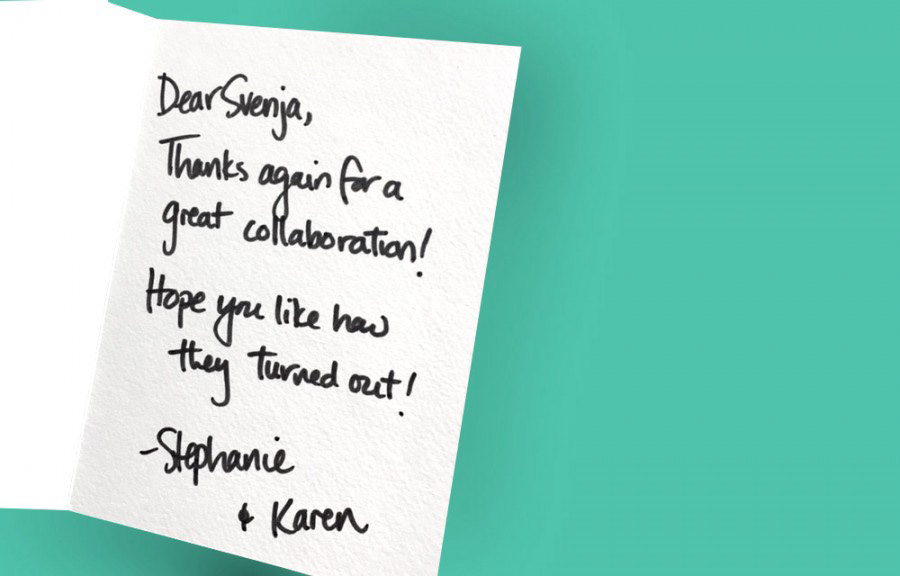 Dear Svenja,
Thanks again for a
great collaboration!
Hope you like how
they turned out!
-Stephanie
& Karen